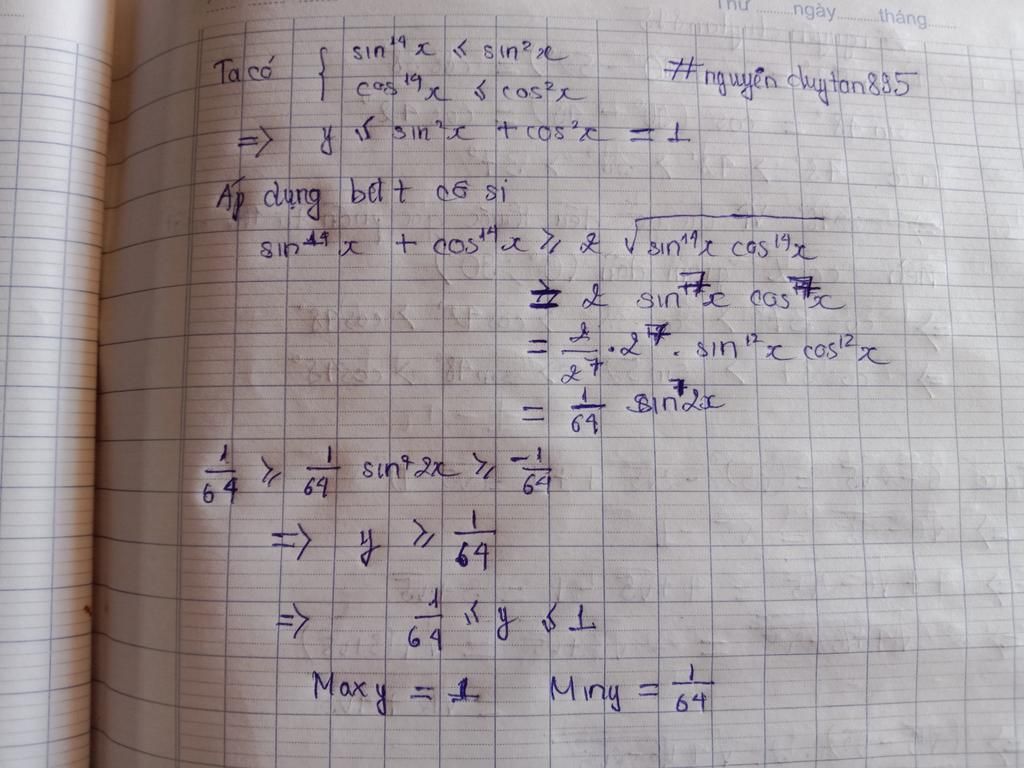 Thứ ........ ngày ........ tháng ........
Ta có { sin¹⁴x ≤ sin²x
cos¹⁴x ≤ cos²x
#nguyễn duytan895
=> y ≤ sin²x + cos²x = 1
Áp dụng bđt cô si
sin¹⁴x + cos¹⁴x ≥ 2 √(sin¹⁴x cos¹⁴x)
= 2 sin⁷x cos⁷x
= 2/2⁷ . 2⁷ . sin¹²x cos¹²x
= 1/64 sin⁷2x
1/64 ≥ 1/64 sin⁷2x ≥ -1/64
=> y ≥ 1/64
=> 1/64 ≤ y ≤ 1
Max y = 1 Min y = 1/64